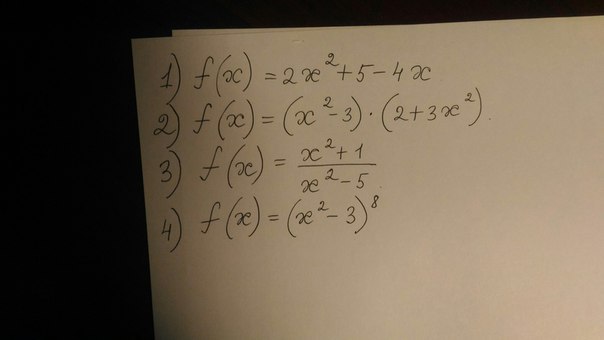 1) f(x) = 2x² + 5 - 4x
2) f(x) = (x² - 3) · (2 + 3x²).
3) f(x) = (x² + 1)/(x² - 5).
4) f(x) = (x² - 3)⁸